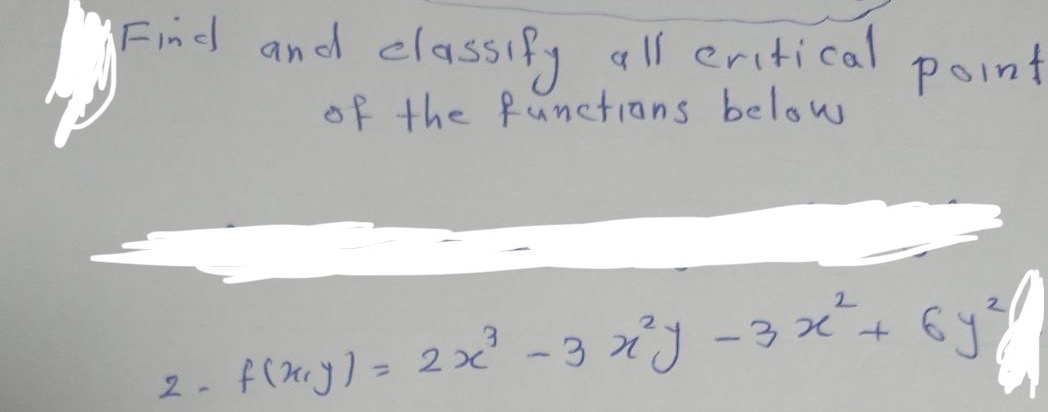 Find and classify all critical point
of the functions below
2- f(x,y) = 2x³ - 3x²y - 3x² + 6y²